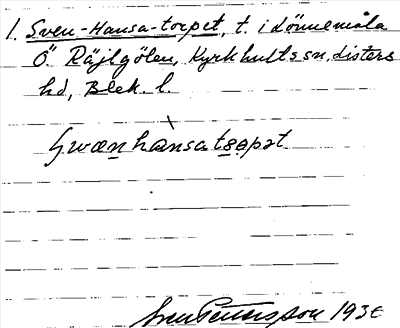 1. Sven-Hansa-torpet, t. i Lönnemåla
Ö. Räjlgölen, Kyrkhults sn, Listers
hd, Blek. l.
Sven Pettersson 193